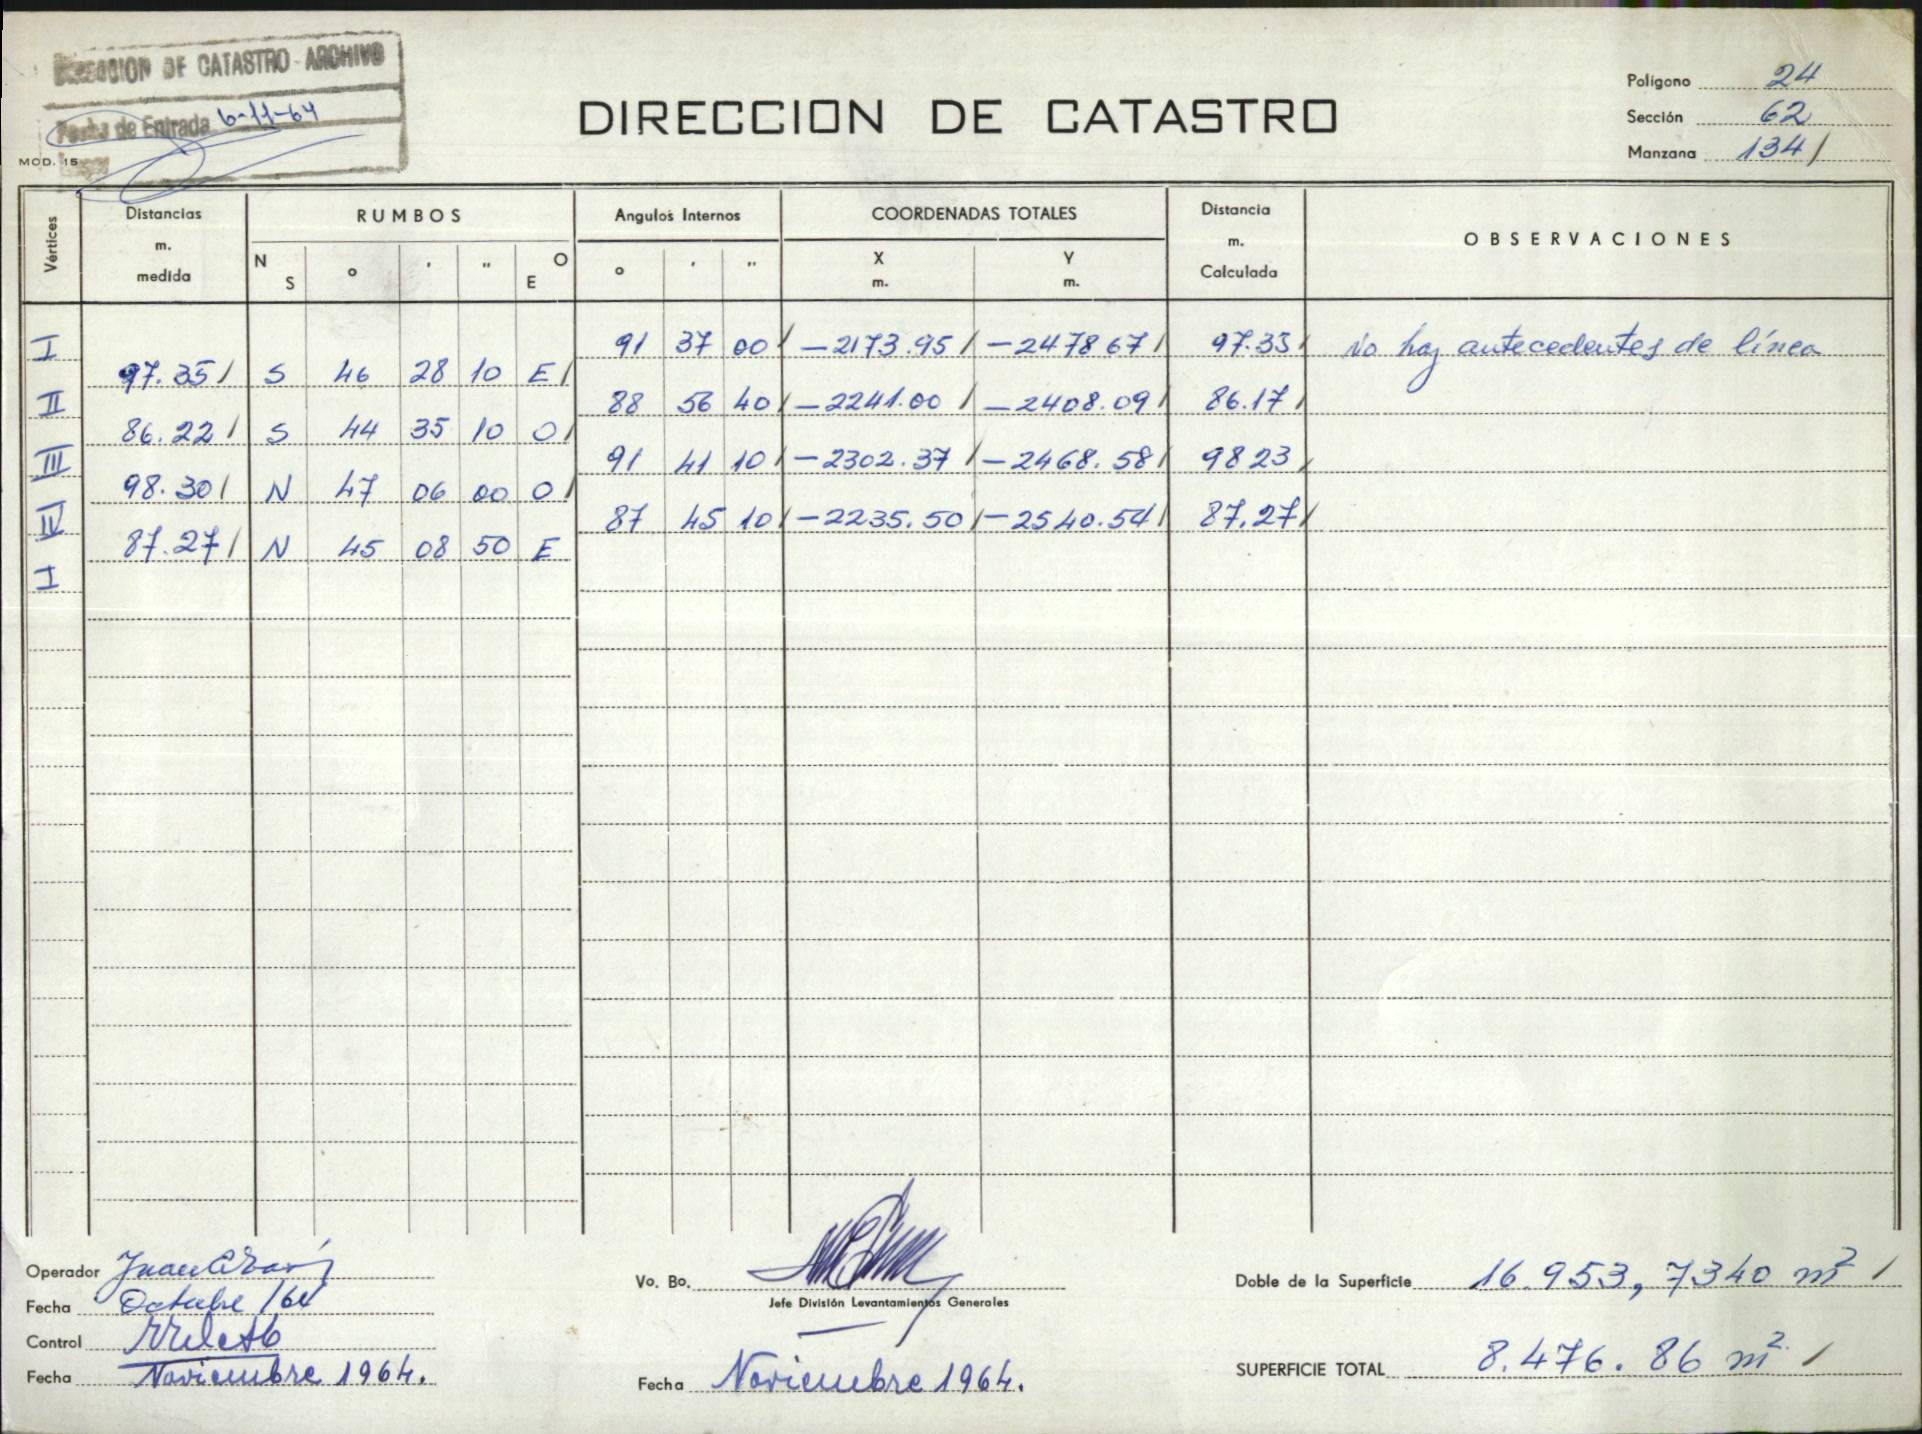 DIRECCION DE CATASTRO - ARCHIVO
Fecha de Entrada 6-11-64
MOD. 15
DIRECCION DE CATASTRO
Polígono 24
Sección 62
Manzana 134/
Vértices
Distancias m. medida
RUMBOS
N S ° ' " O E
Angulos Internos
° ' "
COORDENADAS TOTALES
X m. Y m.
Distancia m. Calculada
OBSERVACIONES
I 91 37 00/ -2173.95/ -2478 67/ 97.35/ No hay antecedentes de línea
97.35/ S 46 28 10 E/
II 88 56 40/ -2241.00/ -2408.09/ 86.17/
86.22/ S 44 35 10 O/
III 91 41 10/ -2302.37/ -2468.58/ 98 23/
98.30/ N 47 06 00 O/
IV 87 45 10/ -2235.50/ -2540.54/ 87.27/
87.27/ N 45 08 50 E
I
Operador Juan
Fecha Octubre /64
Control
Fecha Noviembre 1964.
Vo. Bo.
Jefe División Levantamientos Generales
Fecha Noviembre 1964.
Doble de la Superficie 16.953,7340 m² /
SUPERFICIE TOTAL 8.476.86 m² /